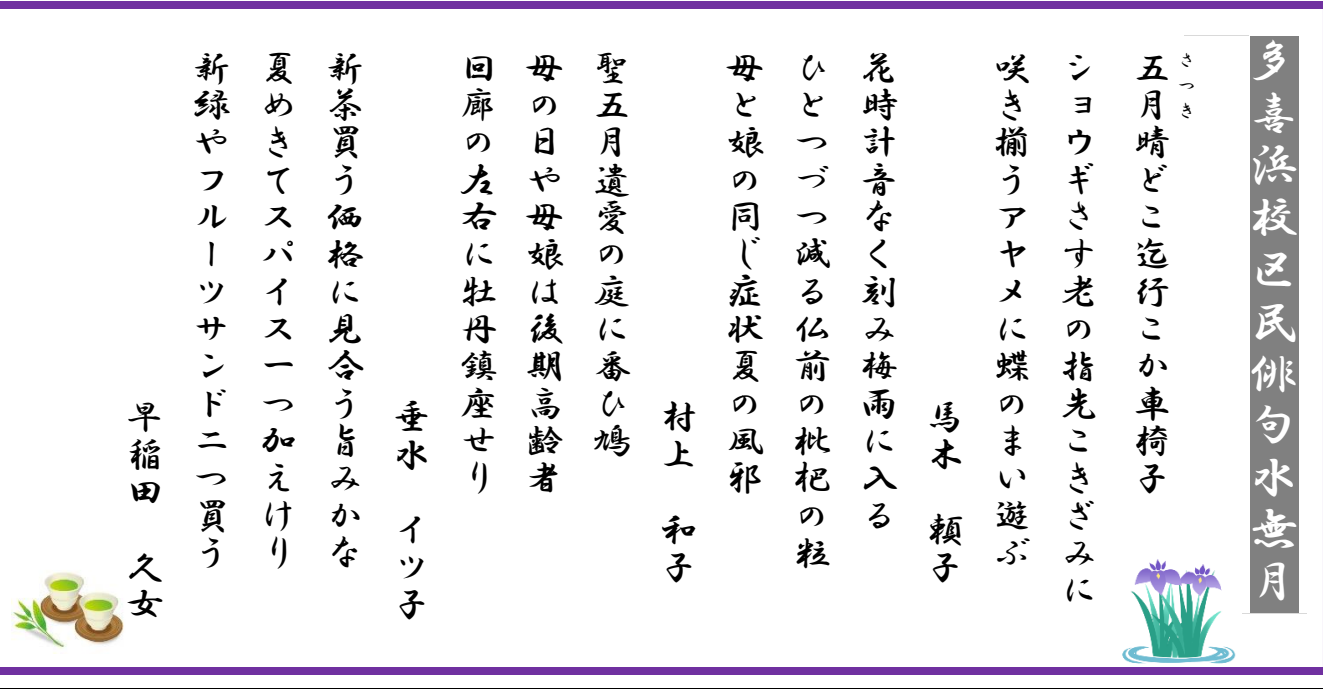 多喜浜校区民俳句水無月
さつき
五月晴どこ迄行こか車椅子
ショウギさす老の指先こきざみに
咲き揃うアヤメに蝶のまい遊ぶ
馬木 頼子
花時計音なく刻み梅雨に入る
ひとつづつ減る仏前の枇杷の粒
母と娘の同じ症状夏の風邪
村上 和子
聖五月遺愛の庭に番ひ鳩
母の日や母娘は後期高齢者
回廊の左右に牡丹鎮座せり
垂水 イツ子
新茶買う価格に見合う旨みかな
夏めきてスパイス一つ加えけり
新緑やフルーツサンド二つ買う
早稲田 久女